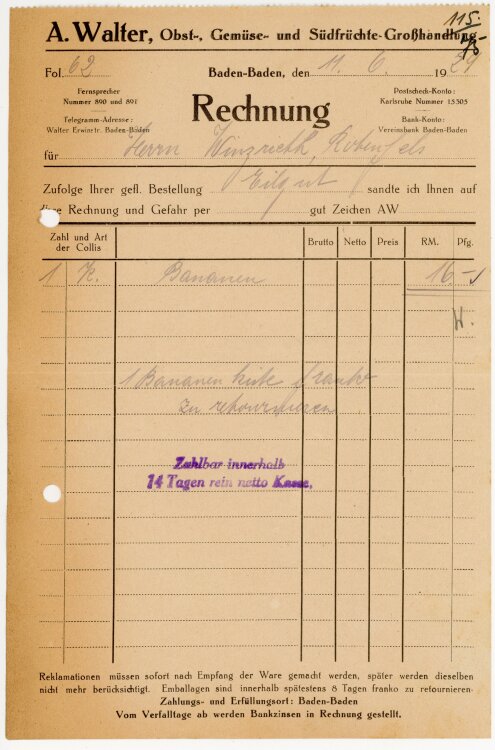 115.
A. Walter, Obst-, Gemüse- und Südfrüchte-Großhandlung
Fol. 62 Baden-Baden, den 11. 6. 1929
Fernsprecher
Nummer 890 und 891
Postscheck-Konto:
Karlsruhe Nummer 15305
Rechnung
Telegramm-Adresse:
Walter Erwinstr. Baden-Baden
Bank-Konto:
Vereinsbank Baden-Baden
für Herrn
Zufolge Ihrer gefl. Bestellung Eilgut sandte ich Ihnen auf
Ihre Rechnung und Gefahr per gut Zeichen AW
Zahl und Art der Collis Brutto Netto Preis RM. Pfg.
1 K. Bananen 16 -
1 Bananen kiste franko
zu retournieren
Zahlbar innerhalb
14 Tagen rein netto Kasse.
Reklamationen müssen sofort nach Empfang der Ware gemacht werden, später werden dieselben
nicht mehr berücksichtigt. Emballagen sind innerhalb spätestens 8 Tagen franko zu retournieren.
Zahlungs- und Erfüllungsort: Baden-Baden
Vom Verfalltage ab werden Bankzinsen in Rechnung gestellt.